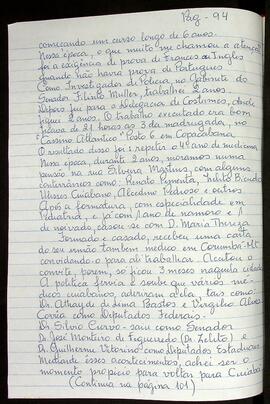 Pág - 94
começando um curso longo de 6 anos.
Nessa época, o que muito me chamou a atenção
foi a exigência de prova de Francês ou Inglês
quando não havia prova de Português.
Como Investigador de Polícia, no Gabinete do
Senador Filinto Muller, trabalhei 2 anos.
Depois fui para a Delegacia de Costumes, onde
fiquei 2 anos. O trabalho executado era bom
ficava de 21 horas às 3 da madrugada, no
"Cassino Atlântico" Posto 6 em Copacabana
O resultado disso foi repetir o 4º ano de medicina
Nessa época, durante 2 anos, moramos numa
pensão na rua Silveira Martins, com alguns
conterrâneos como: Renato Pimenta,
Ulisses Cuiabano, Alcedino Pedroso e outros
Após a formatura, com especialidade em
Pediatria, e já com 1 ano de namoro e 1
de noivado, casou-se com D. Maria Thereza
Formado e casado, recebeu uma carta
do seu irmão também médico em Corumbá-Mt.
convidando-o para ali trabalhar. Aceitou o
convite, porém, só ficou 3 meses naquela cidade
A política fervia e soube que vários mé-
dicos cuiabanos, aderiram a ela tais como:
Dr. Athayde de Lima Bastos e Virgílio Alves
Corrêa como Deputados Federais.
Dr. Silvio Curvo - saiu como Senador
Dr. José Monteiro de Figueiredo (Dr. Zelito) e
Dr. Guilherme Vitorino como Deputados Estaduais
Mediante esses acontecimentos, achei ser o
momento propício para voltar para Cuiabá
(Continua na página 101)